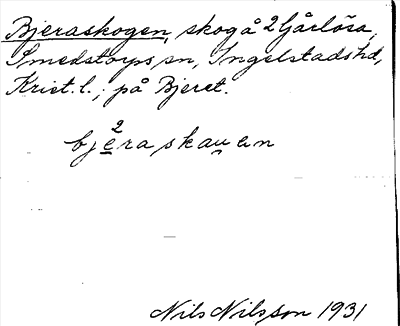 Bjeraskogen, skog å 2 Gårlösa,
Smedstorps sn, Ingelstads hd,
Krist. l.; på Bjeret.
2
bjęra skauen
Nils Nilsson 1931